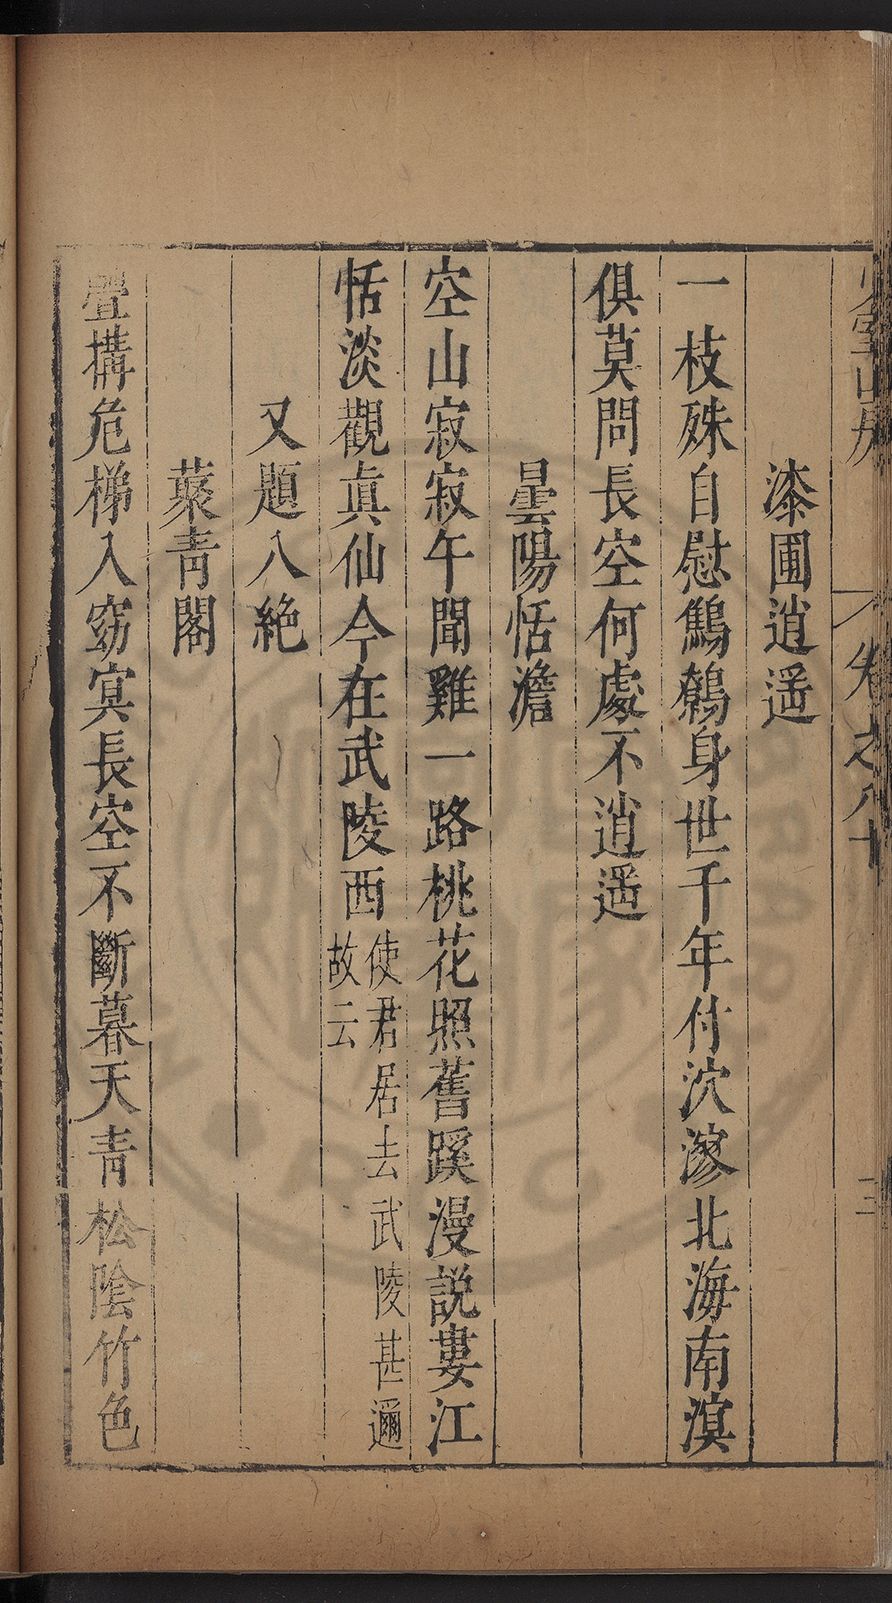 少室山房 卷之八十 三
漆園逍遥
一枝殊自慰鷦鷯身世千年付泬漻北海南溟
俱莫問長空何處不逍遥
曇陽恬澹
空山寂寂午聞雞一路桃花照舊蹊漫説婁江
恬淡觀真仙今在武陵西使君居去武陵甚邇
故云
又題八絶
蘂青閣
疊搆危梯入窈冥長空不斷暮天青松陰竹色